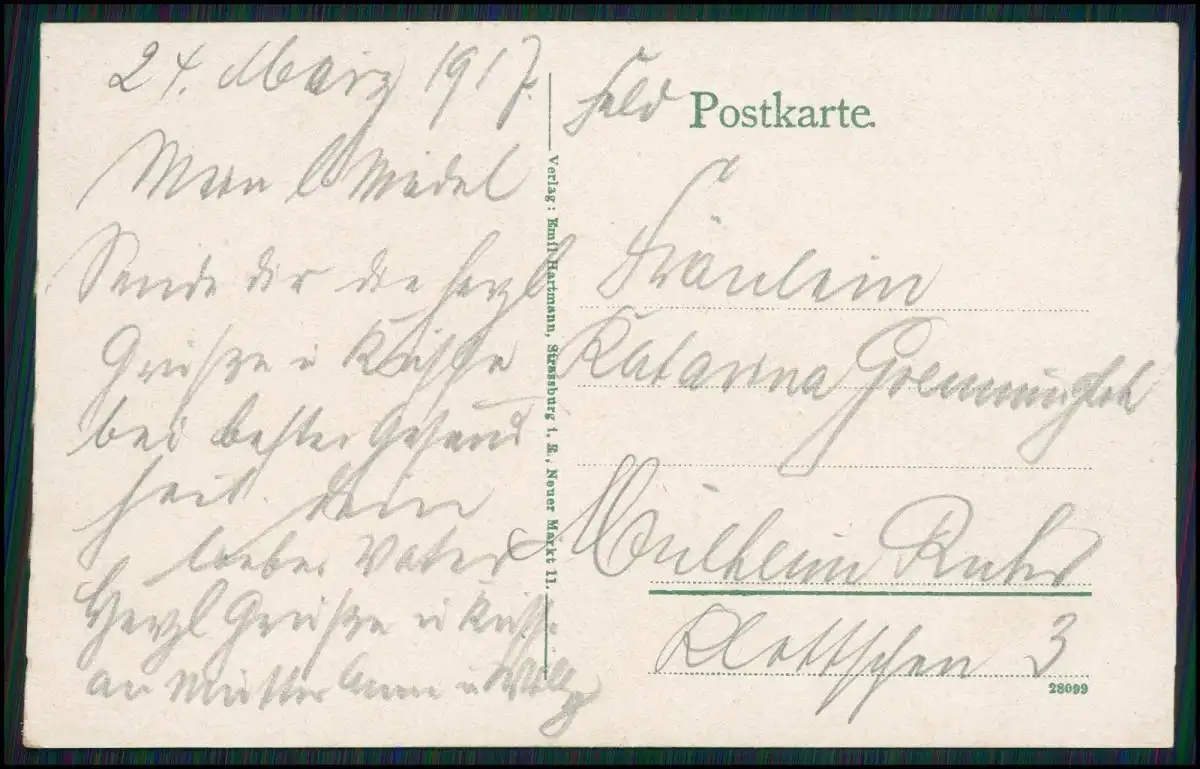 24. März 1917.
Mein l Mädel
Sende dir die herzl
Grüße u Küsse
bei bester Gesund
heit. Dein
lieber Vater
Herzl Grüße u Küsse
an Mutter Anna u
Feld Postkarte.
Fräulein
Katarina
Mülheim Ruhr
Klottschen 3
28099
Verlag: Emil Hartmann, Strassburg i. E., Neuer Markt 11.